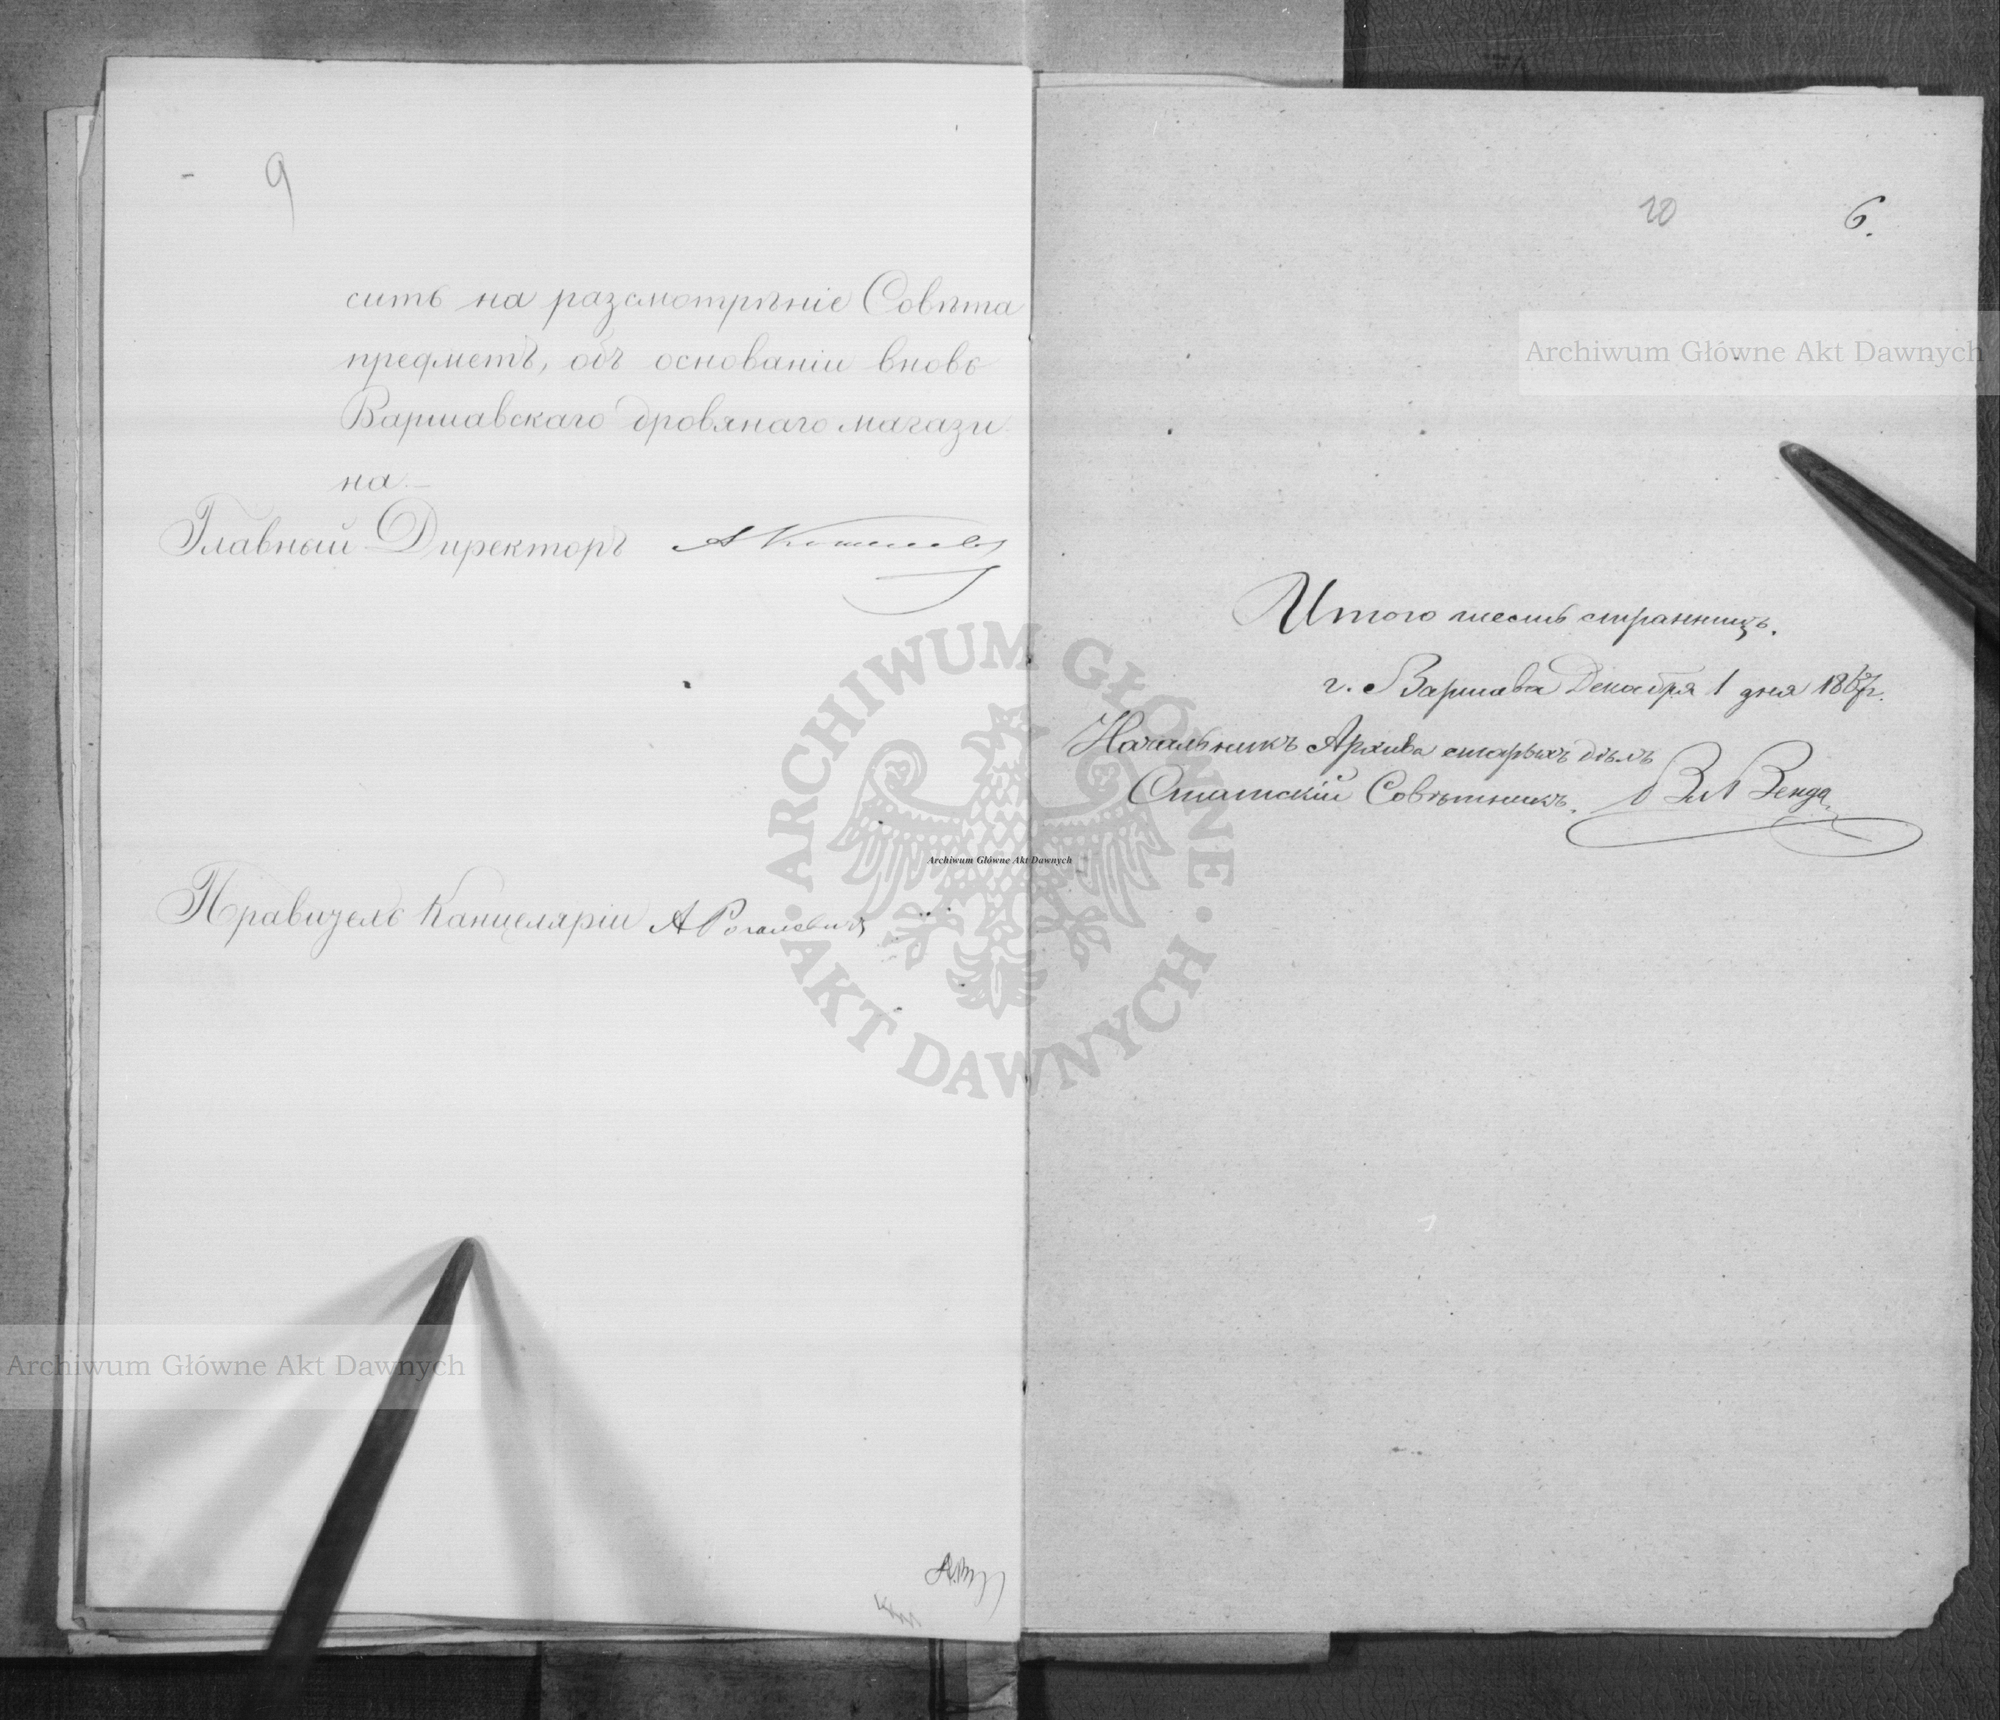 9
сить на разсмотрѣніе Совѣта
предметъ, объ основаніи вновь
Варшавскаго дровянаго магази
на.—
Главный Директоръ А Кошелевъ
Правитель Канцеляріи А Рогалевичъ
10
6.
Итого шесть странницъ.
г. Варшава Декабря 1 дня 1867 г.
Начальникъ Архива старыхъ дѣлъ
Статскій Совѣтникъ. Зенда
Archiwum Główne Akt Dawnych
Archiwum Główne Akt Dawnych
Archiwum Główne Akt Dawnych
ARCHIWUM GŁÓWNE
· AKT DAWNYCH ·